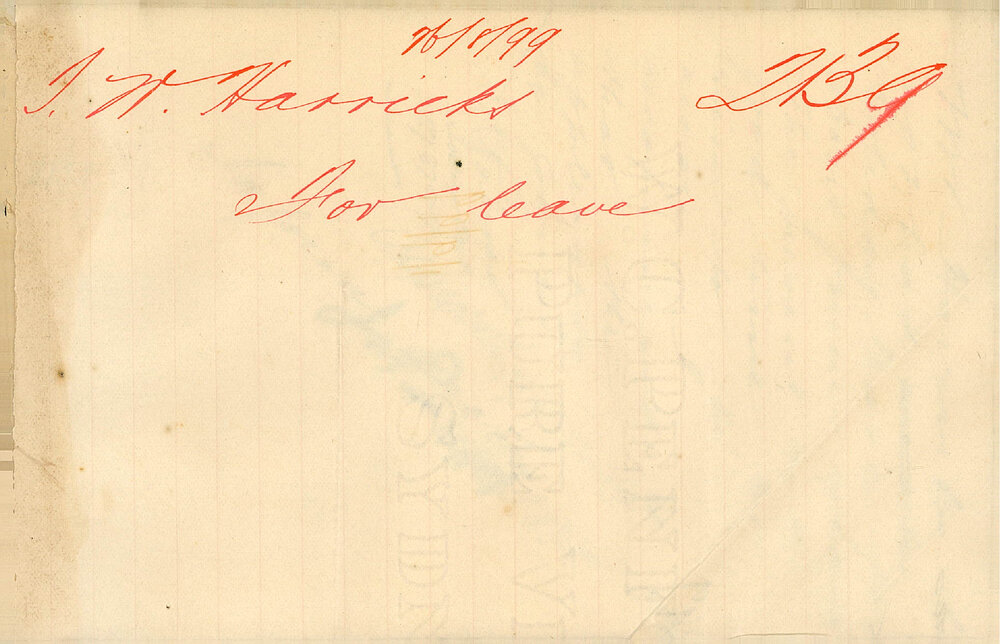 26/8/99
J. W. Harricks 239
For leave